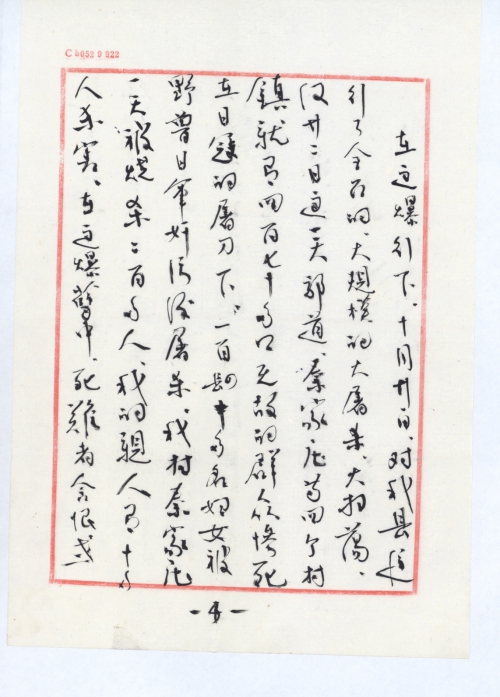 C h052 0 022
在这爆行下、十月廿日、对我县进
行了全面的、大规模的大屠杀、大扫荡、
仅廿二日这一天郭道、秦家庄等四个村
镇就有四百七十多口无故的群众惨死
在日寇的屠刀下、一百 十多名妇女被
野兽日军奸污后屠杀、我村秦家庄
一天被烧杀二百多人、我的亲人有十多
人杀害、在这爆 中、死难者含恨
- 4 -